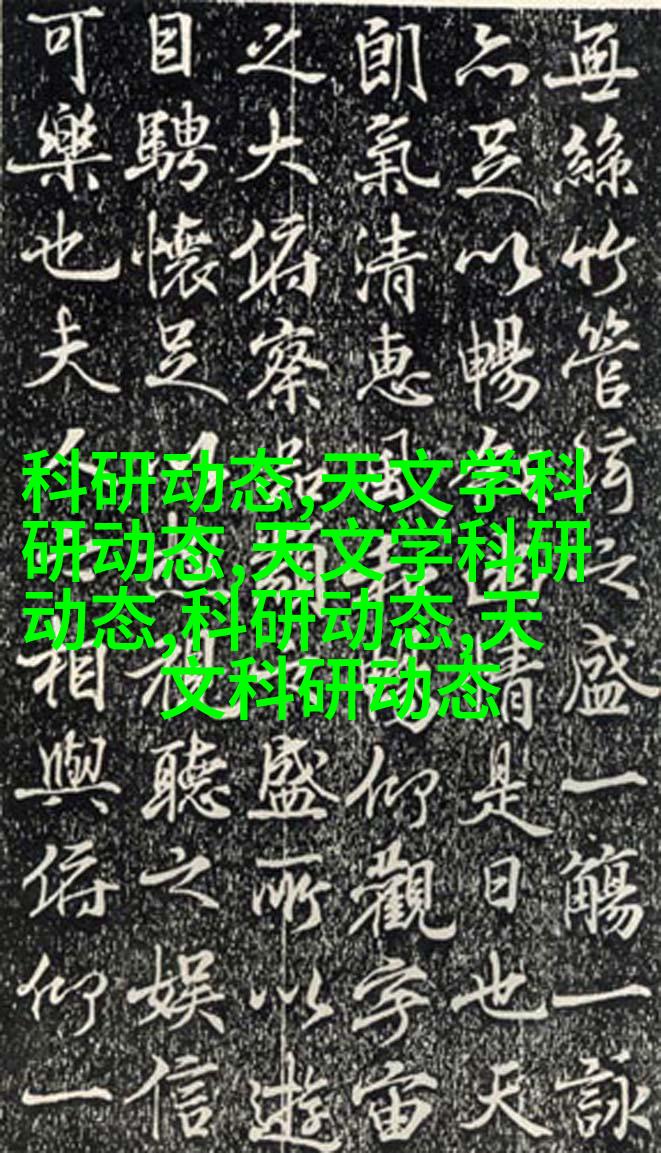 無絲竹管絃之盛一觴一詠
亦足以暢情是日也天
朗氣清惠風暢仰觀宇宙
之大俯察品類盛所以遊
目騁懷足視聽之娛信
可樂也夫相與俯仰一
科研动态,天文学科
研动态,天文学科研
动态,科研动态,天
文科研动态